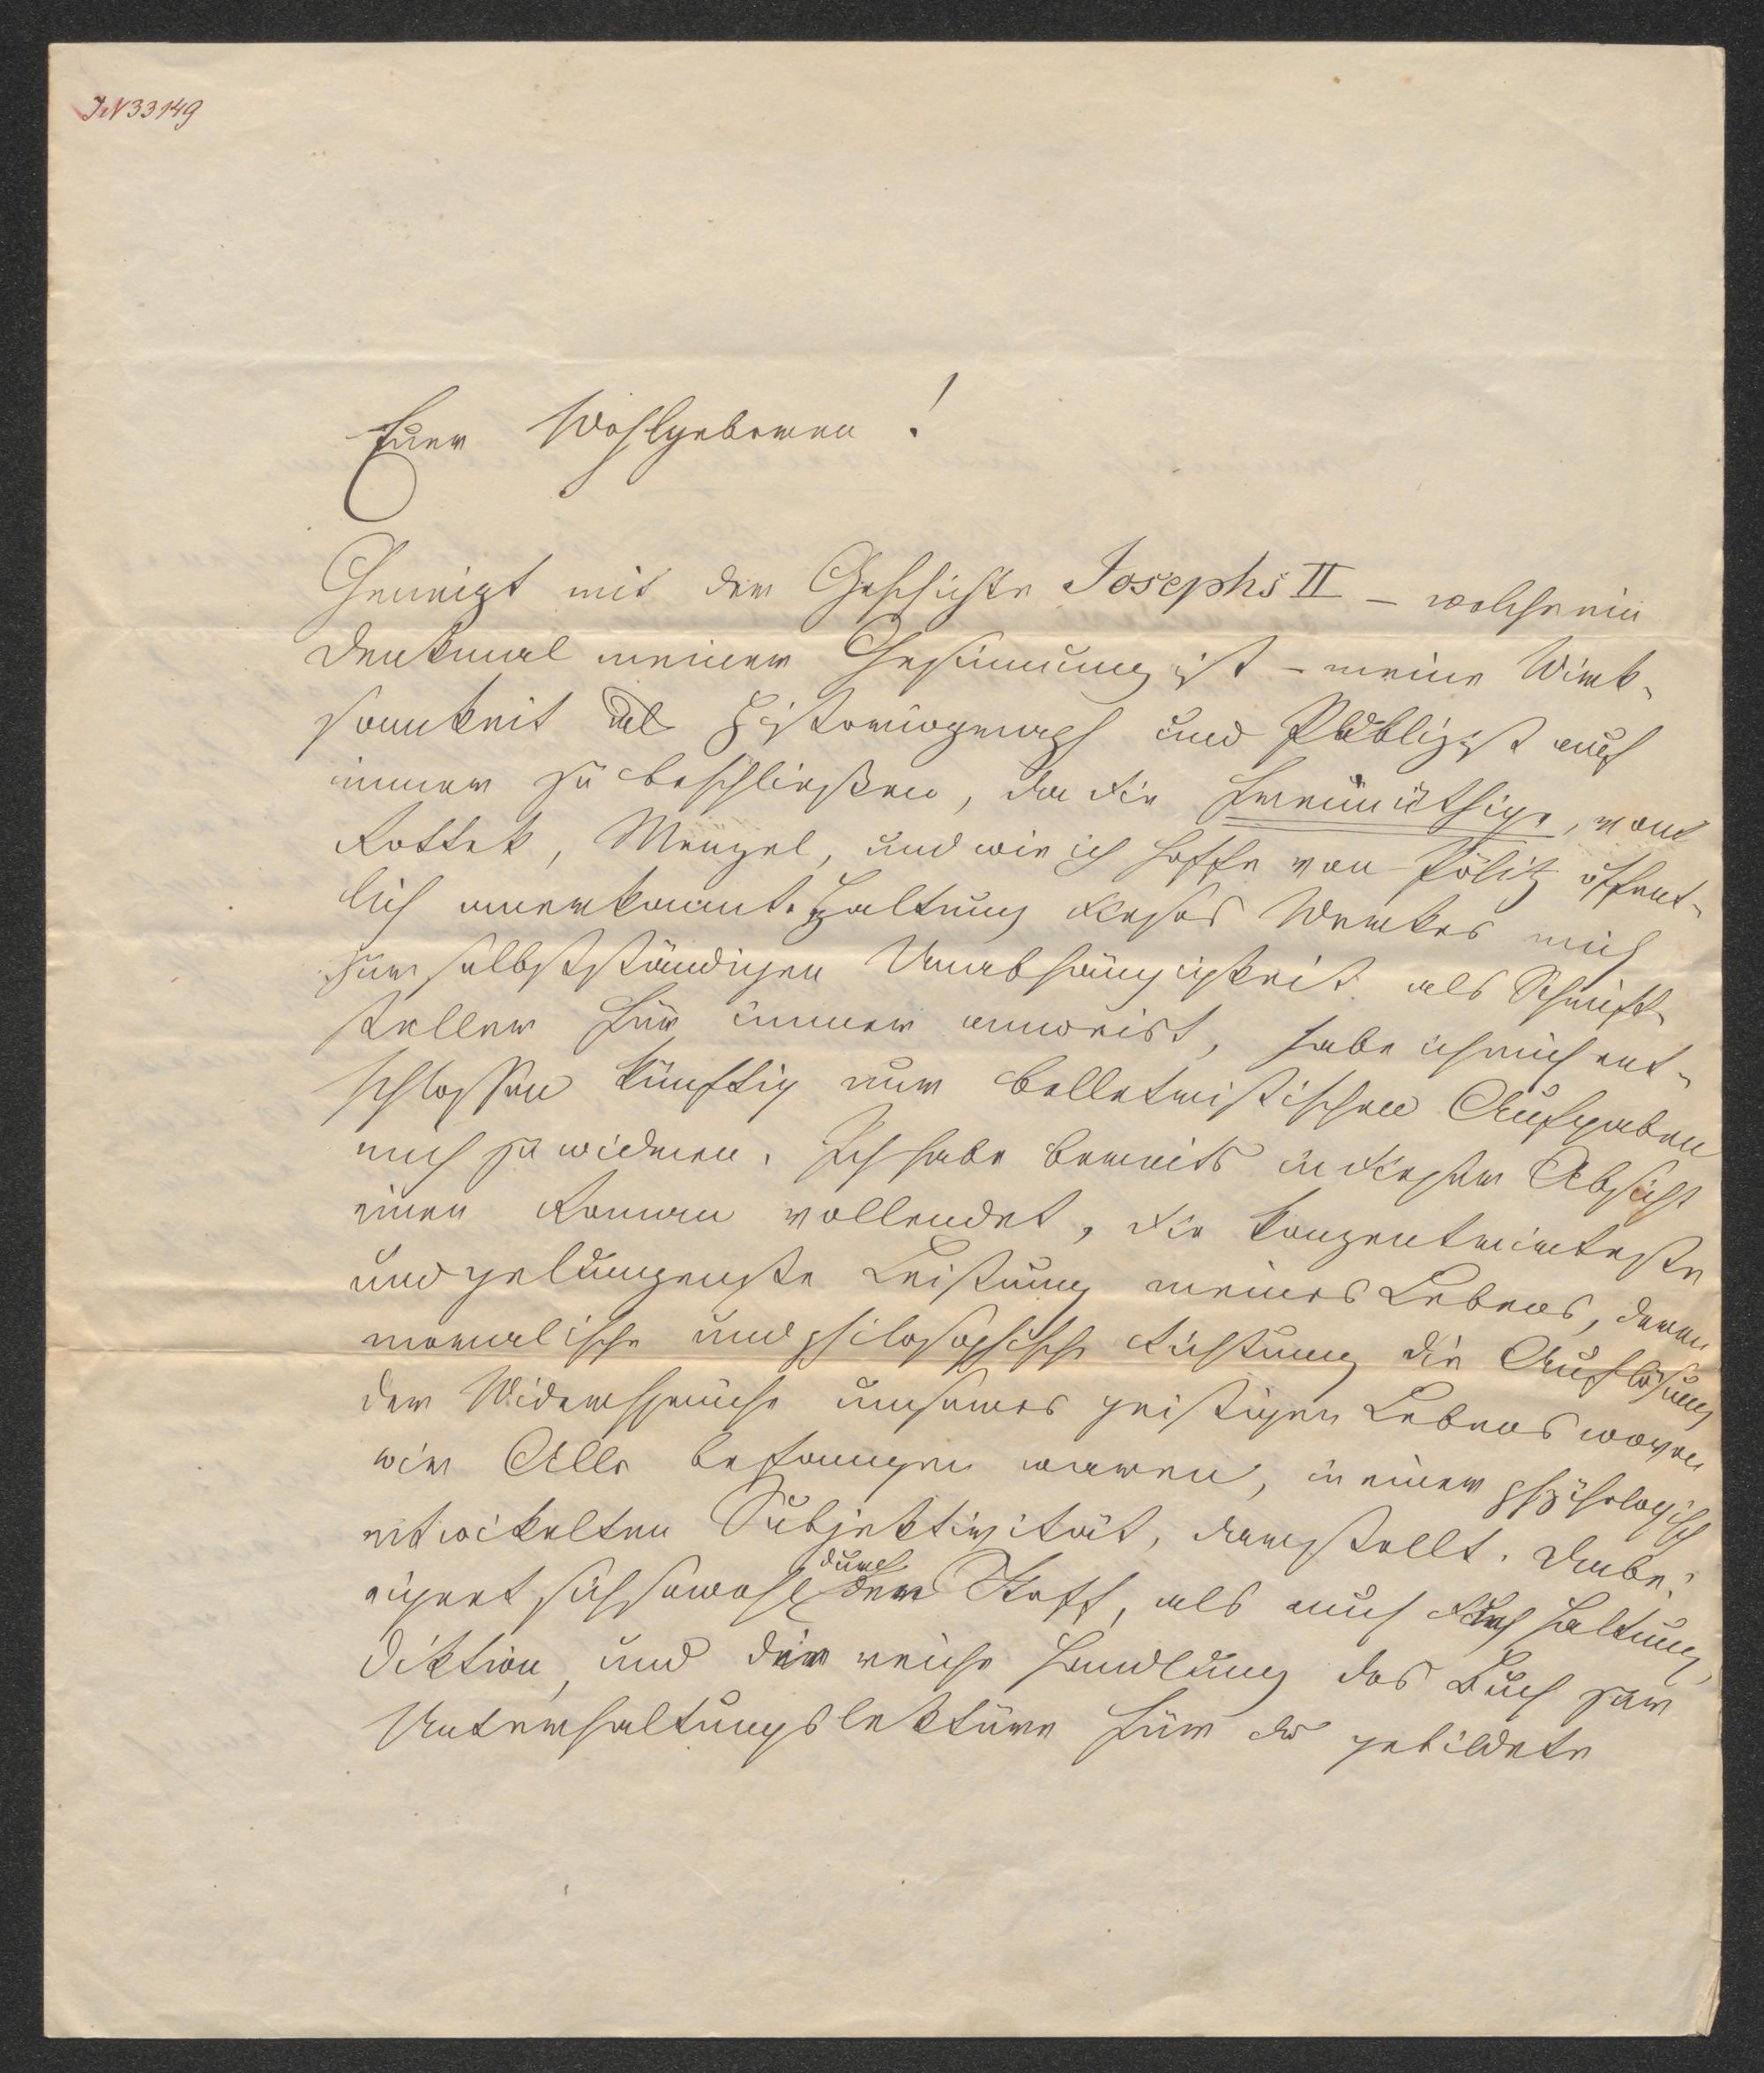 IN 33149
Euer Wohlgeboren!
Geneigt mit der Geschichte Josephs II – welche ein
Denkmal meiner Gesinnung ist – meine Wirk-
samkeit als Historiograph und Publizist auf
immer zu beschließen, da die freimüthige, von
Rottek, Menzel, und wie ich hoffe von Pölitz öffent-
lich anerkannte Haltung dieses Werkes mich
zur selbstständigen Unabhängigkeit als Schrift-
steller für immer anweist, habe ich mich ent-
schlossen künftig nur belletristischen Aufgaben
mich zu widmen. Ich habe bereits in dieser Absicht
einen Roman vollendet, die konzentrirteste
und gelungenste Leistung meines Lebens, deren
moralische und philosophische Richtung die Auflösung
der Widersprüche unseres geistigen Lebens wovon
wir Alle befangen waren, in einer psychologisch
entwickelten Subjektivität, darstellt. Dabei
eignet sich sowohl durch den Stoff, als auch durch Haltung,
Diktion, und die reiche Handlung das Buch zur
Unterhaltungslektüre für das gebildete